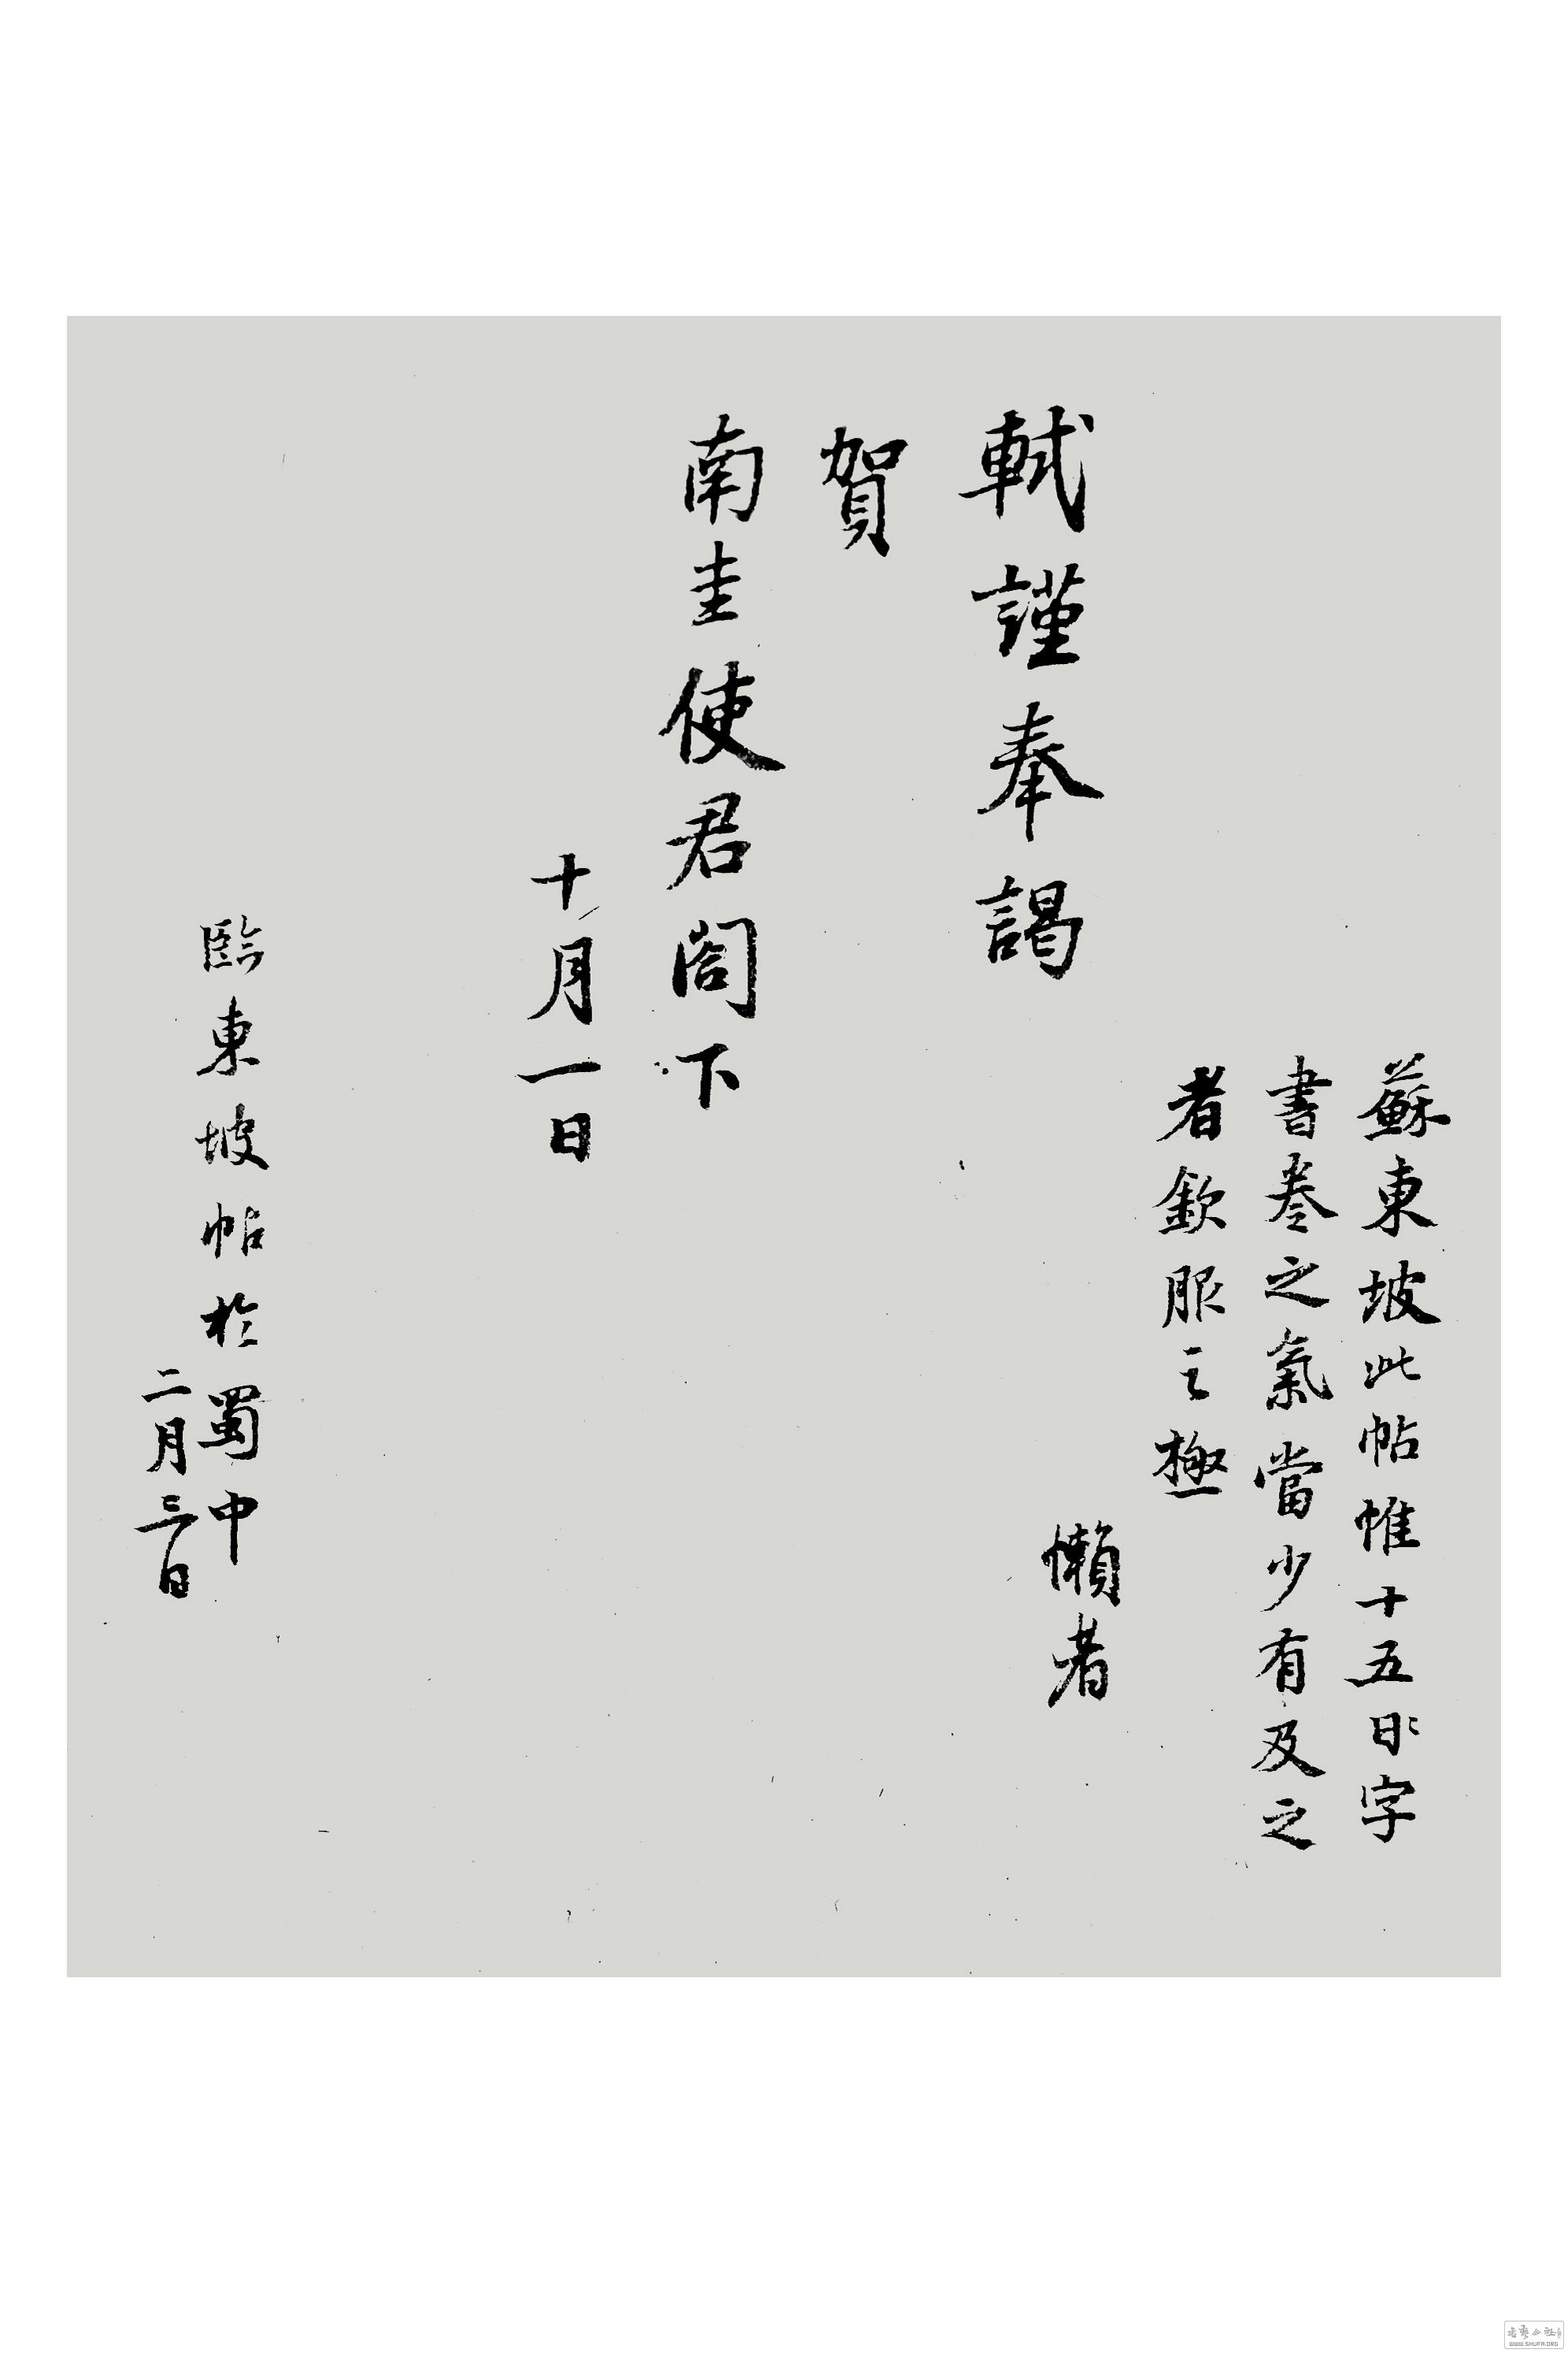 蘇東坡此帖惟十五日字
書卷之氣當少有及之
者欽服之極
懶者
軾謹奉謁
賀
南圭使君閣下
十月一日
臨東坡帖於蜀中
二月三日
WWW.SHUFA.ORG